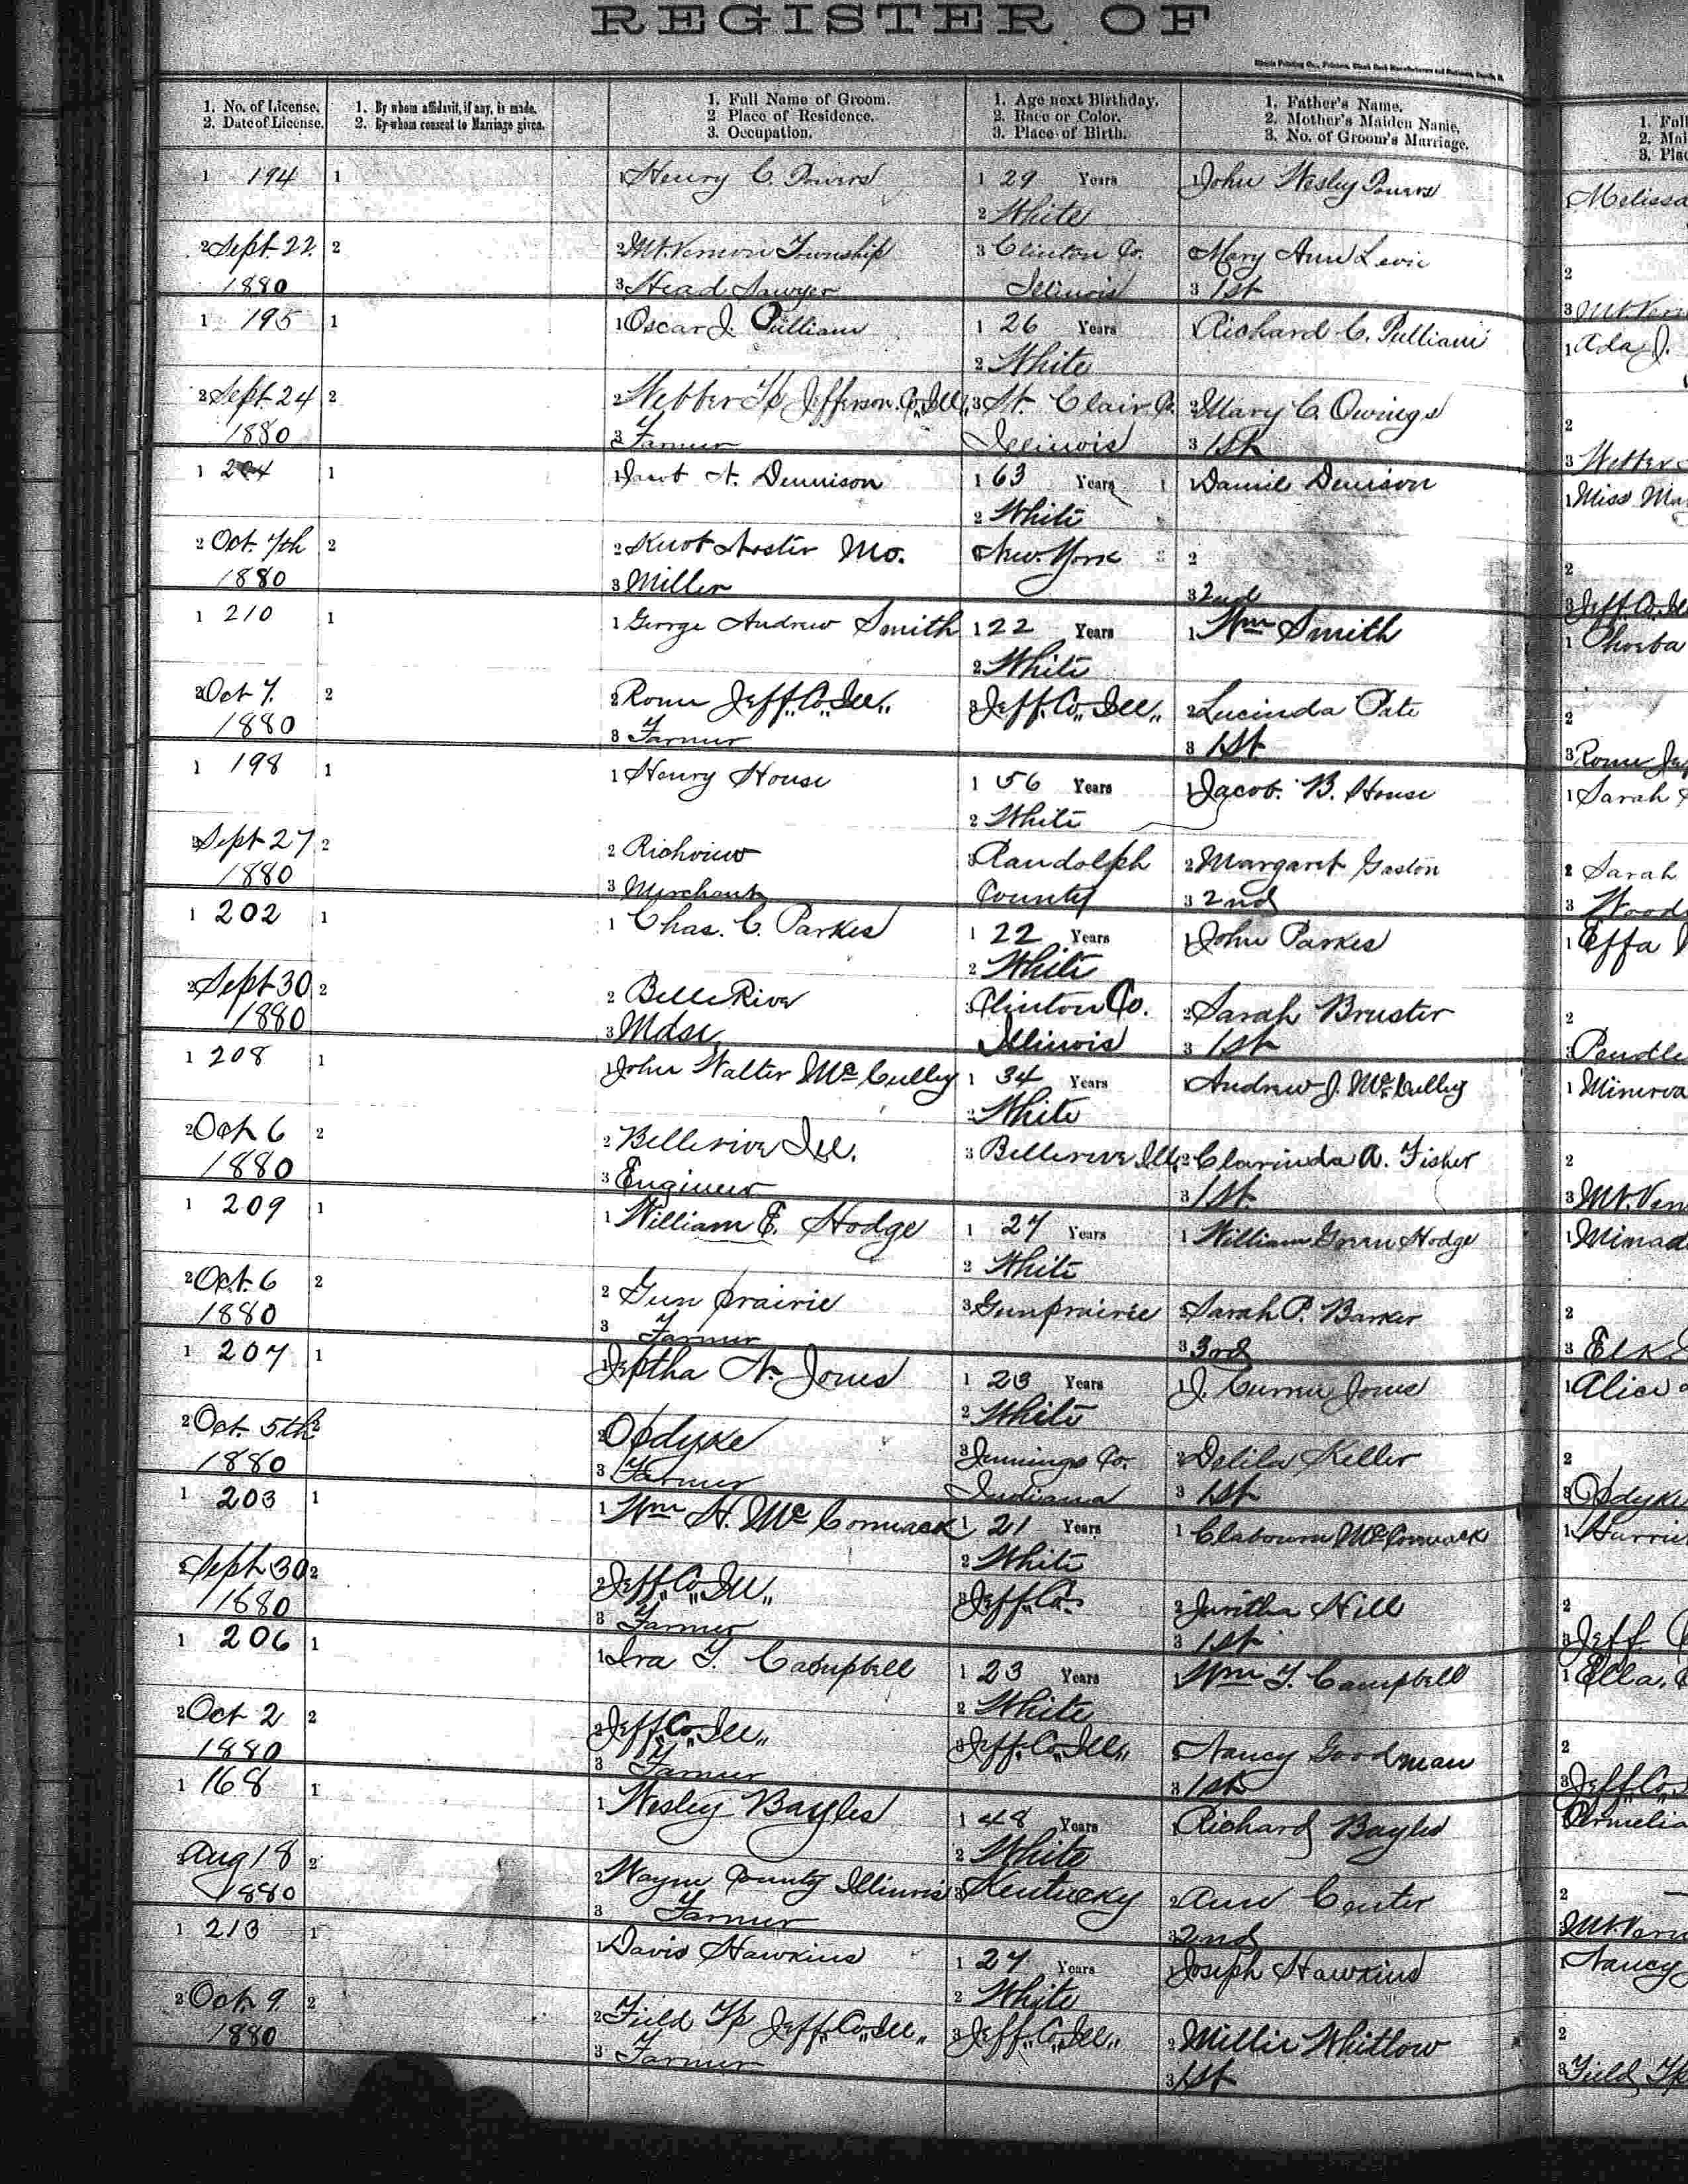 REGISTER OF
1. No. of License.
2. Date of License.
1. By whom affidavit, if any, is made.
2. By whom consent to Marriage given.
1. Full Name of Groom.
2 Place of Residence.
3. Occupation.
1. Age next Birthday.
2. Race or Color.
3. Place of Birth.
1. Father's Name.
2. Mother's Maiden Name.
3. No. of Groom's Marriage.
1 194 1 1 Henry C. Powers 1 29 Years 1 John Wesley Powers Melissa
2 White
2 Sept. 22. 2 2 Mt. Vernon Township 3 Clinton Co. Mary Ann 2
1880 3 Head Sawyer Illinois 3 1st 3 Mt. Vern
1 195 1 1 Oscar J. Pulliam 1 26 Years Richard C. Pulliam 1 Ada J.
2 White
2 Sept. 24 2 2 Webber Tp Jefferson Co, Ill, 3 St. Clair Co. 2 Mary C. Owings 2
1880 3 Farmer Illinois 3 1st 3 Webber
1 204 1 1 Jacob Dennison 1 63 Years 1 Daniel Denison 1 Miss Ma
2 White
2 Oct. 7th 2 2 Knob Noster Mo. New York 2 2
1880 3 Miller 3 2nd 3 Jeff. Co. Il
1 210 1 1 George Andrew Smith 1 22 Years 1 Wm Smith 1 Phoeba
2 White
2 Oct 7. 2 2 Rome Jeff. Co. Ill. 3 Jeff. Co. Ill. 2 Lucinda Pate 2
1880 3 Farmer 3 1st 3 Rome Je
1 198 1 1 Henry House 1 56 Years 1 Jacob. B. House 1 Sarah
2 White
2 Sept 27 2 2 Richview 3 Randolph 2 Margaret Gaston 2 Sarah
1880 3 Merchant County 3 2nd 3 Wood
1 202 1 1 Chas. C. Parkes 1 22 Years 1 John Parkes 1 Effa
2 White
2 Sept 30 2 2 Belle River Clinton Co. 2 Sarah Bruster 2
1880 3 Mdse, Illinois 3 1st 3 Pendle
1 208 1 1 John Walter McCulley 1 34 Years 1 Andrew J. McCulley 1 Minerva
2 White
2 Oct 6 2 2 Bellerive Ill. 3 Bellerive Ill. 2 Clarinda A. Fisher 2
1880 3 Engineer 3 1st. 3 Mt. Ven
1 209 1 1 William E. Hodge 1 27 Years 1 William Green Hodge 1 Minad
2 White
2 Oct. 6 2 2 Gun prairie 3 Gunprairie 2 Sarah P. Barker 2
1880 3 Farmer 3 3rd 3 Elk
1 207 1 1 Jeptha N. Jones 1 23 Years 1 J. Jones 1 Alice
2 White
2 Oct. 5th 2 2 Opdyke 3 Jennings Co. 2 Delila Keller 2
1880 3 Farmer Indiana 3 1st 3 Opdyke
1 203 1 1 Wm H. McCormack 1 21 Years 1 Clabourn McCormack 1 Harrie
2 White
2 Sept. 30 2 2 Jeff. Co. Ill. 3 Jeff. Co. 2 Juritha Hill 2
1880 3 Farmer 3 1st 3 Jeff.
1 206 1 1 Ira T. Campbell 1 23 Years 1 Wm T. Campbell 1 Ella.
2 White
2 Oct 2 2 2 Jeff. Co. Ill. 3 Jeff. Co. Ill. 2 Nancy Goodman 2
1880 3 Farmer 3 1st 3 Jeff. Co.
1 168 1 1 Wesley Bayles 1 48 Years Richard Bayles Permelia
2 White
2 Aug 18 2 2 Wayne County Illinois 3 Kentucky 2 Ann Center 2
1880 3 Farmer 3 2nd Mt. Vern
1 213 1 1 Davis Hawkins 1 27 Years 1 Joseph Hawkins 1 Nancy
2 White
2 Oct. 9 2 2 Field Tp Jeff. Co. Ill. 3 Jeff. Co. Ill. 2 Millie Whitlow 2
1880 3 Farmer 3 1st 3 Field Tp